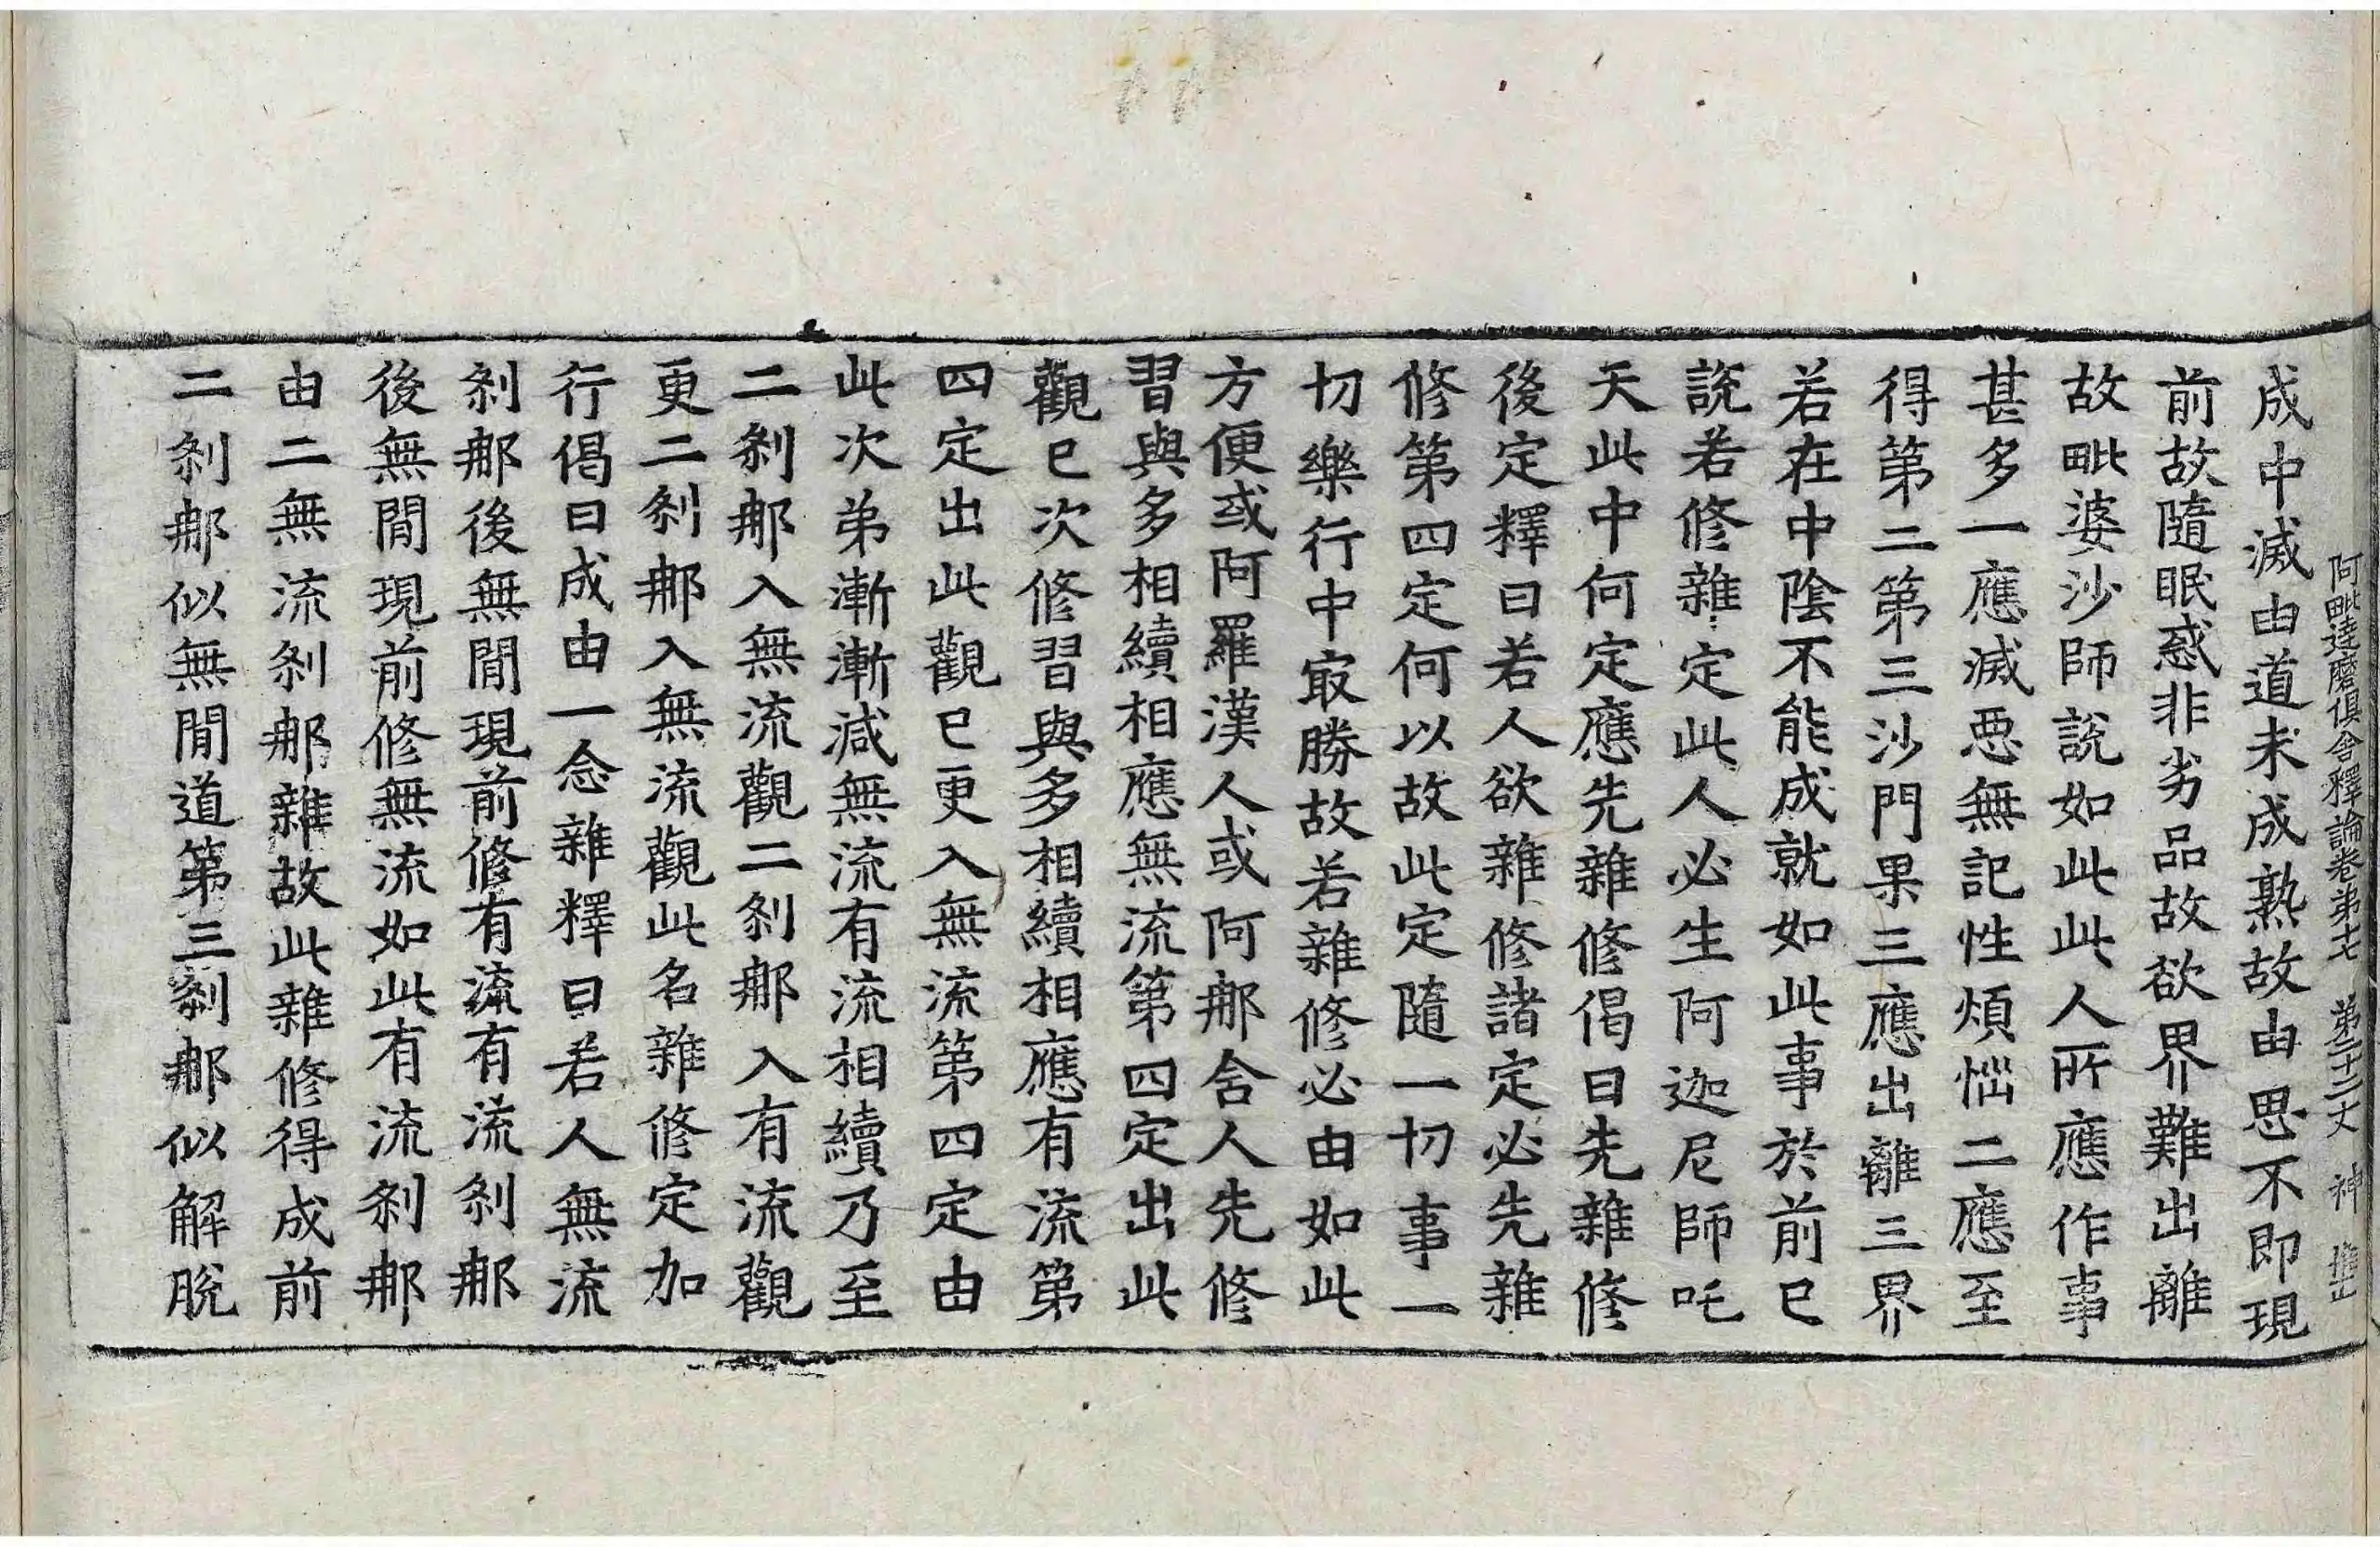 阿毗達磨俱舍釋論卷弟十七 弟二十二丈 神
成中滅由道未成熟故由思不即現
前故隨眠惑非劣品故欲界難出離
故毗婆沙師說如此此人所應作事
甚多一應滅惡無記性煩惱二應至
得第二第三沙門果三應出離三界
若在中陰不能成就如此事於前已
說若修雜定此人必生阿迦尼師吒
天此中何定應先雜修偈曰先雜修
後定釋曰若人欲雜修諸定必先雜
修第四定何以故此定隨一切事一
切樂行中㝡勝故若雜修必由如此
方便或阿羅漢人或阿那舍人先修
習與多相續相應無流第四定出此
觀已次修習與多相續相應有流第
四定出此觀已更入無流第四定由
此次弟漸漸減無流有流相續乃至
二剎那入無流觀二剎那入有流觀
更二剎那入無流觀此名雜修定加
行偈曰成由一念雜釋曰若人無流
剎那後無間現前修有流有流剎那
後無間現前修無流如此有流剎那
由二無流剎那雜故此雜修得成前
二剎那似無間道第三剎那似解脫